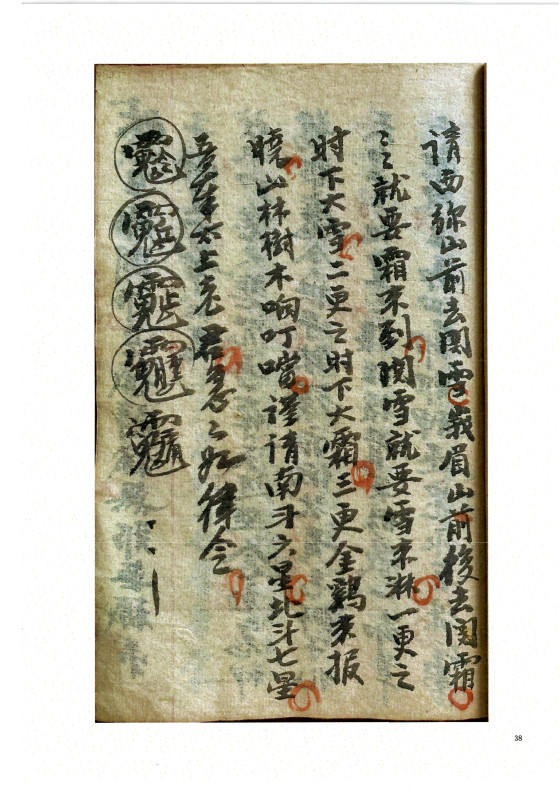 请西弥山前去闵雪峩眉山前後去闵霜
〻就要霜來到闵雪就要雪來淋一更之
时下大雪二更之时下大霜三更金鷄來报
曉山林樹木响叮噹谨请南斗六星北斗七星
吾奉太上老君急〻如律令
38